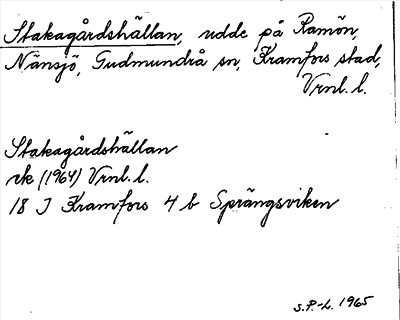 Stakagårdshällan, udde på Ramön,
Nänsjö, Gudmundrå sn, Kramfors stad,
Vrnl. l.
Stakagårdshällan
rk (1964) Vrnl. l.
18 J Kramfors 4 b Sprängsviken
S.P.-L. 1965